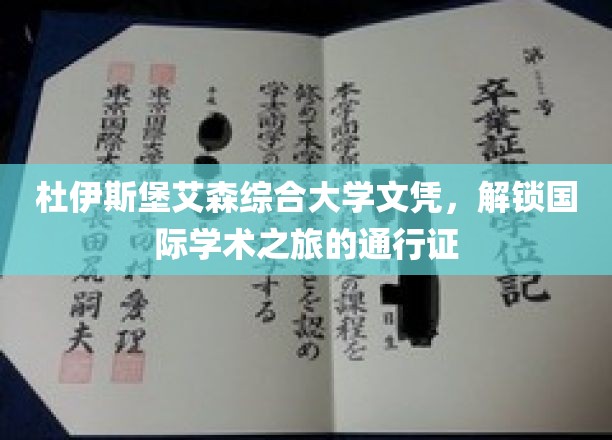 杜伊斯堡艾森综合大学文凭，解锁国
际学术之旅的通行证
第 号
卒業証 学位記
日生
本学商学部 定の課程を
修めて本学 ことを認め
学士(商学)の する
平成
東京国際大学 田村愛理
東京国際大 長田尻嗣夫